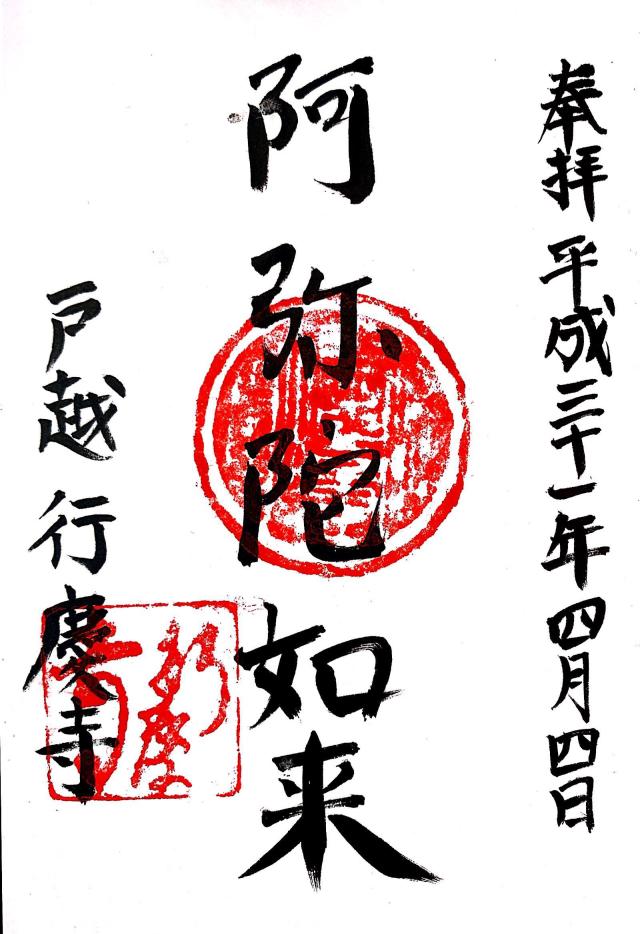 奉拝 平成三十一年四月四日
阿弥陀如来
戸越 行慶寺